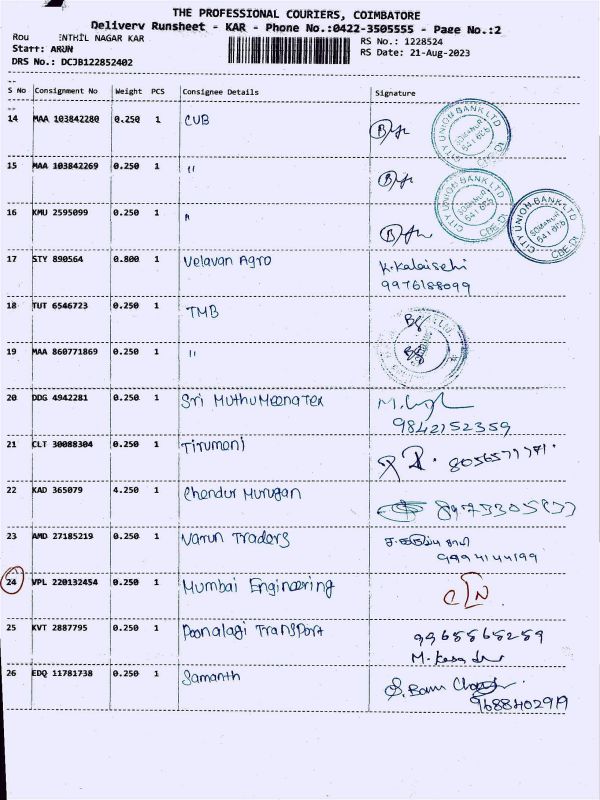 THE PROFESSIONAL COURIERS, COIMBATORE
Delivery Runsheet - KAR - Phone No.:0422-3505555 - Page No.:2
Rou ENTHIL NAGAR KAR
RS No.: 1228524
Start: ARUN
RS Date: 21-Aug-2023
DRS No.: DCJB122852402
S No Consignment No Weight PCS Consignee Details Signature
14 MAA 103842280 0.250 1 CUB
CITY UNION BANK LTD
SOMANUR
641 668
CBE DT
15 MAA 103842269 0.250 1 "
CITY UNION BANK LTD
SOMANUR
641 668
CBE DT
16 KMU 2595099 0.250 1 "
CITY UNION BANK LTD
SOMANUR
641 668
CBE DT
17 STY 890564 0.800 1 Velavan Agro K.Kalaiselvi
9976188099
18 TUT 6546723 0.250 1 TMB
19 MAA 860771869 0.250 1 "
20 DDG 4942281 0.250 1 Sri MuthuMeena Tex
9842152359
21 CLT 30088304 0.250 1 Tirumoni
22 KAD 365079 4.250 1 Chendur Murugan
23 AMD 27185219 0.250 1 Varun Traders
9994144199
24 VPL 220132454 0.250 1 Mumbai Engineering
25 KVT 2887795 0.250 1 Poonalagi Transport 9965565259
26 EDQ 11781738 0.250 1 Samanth
9688402919